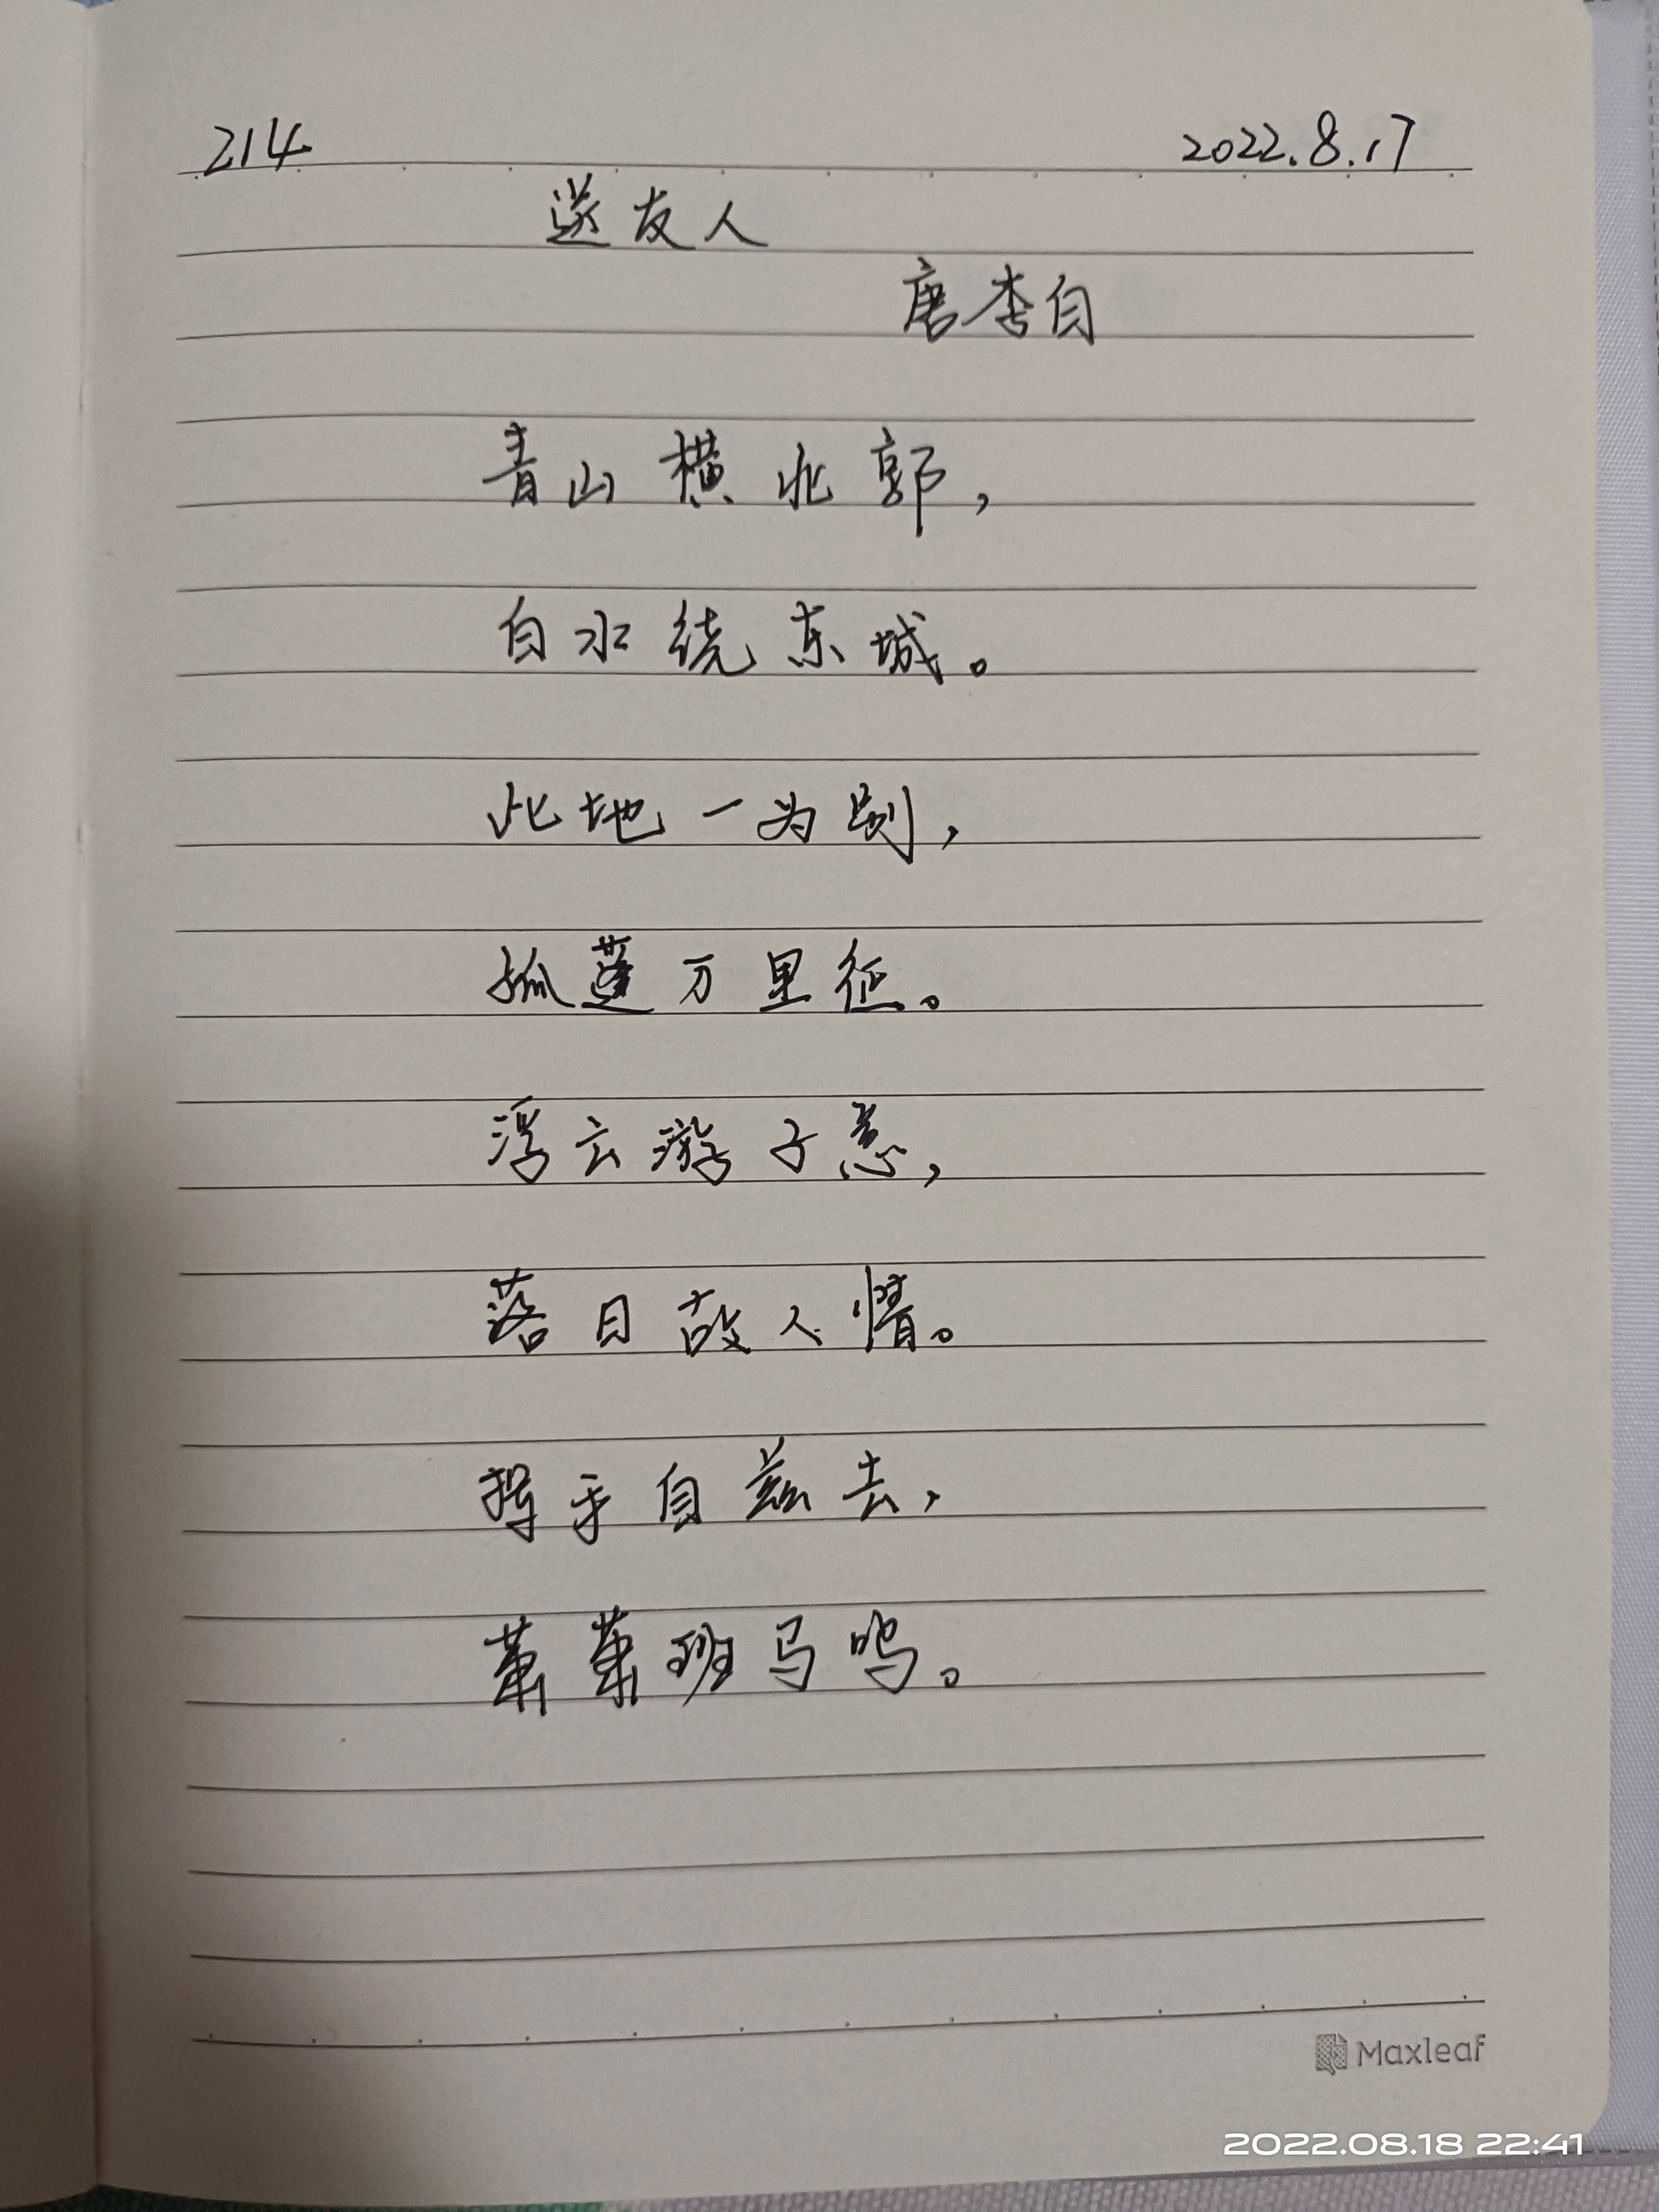 214 2022.8.17
送友人
唐李白
青山横北郭,
白水绕东城。
此地一为别,
孤蓬万里征。
浮云游子意,
落日故人情。
挥手自兹去,
萧萧班马鸣。
Maxleaf
2022.08.18 22:41